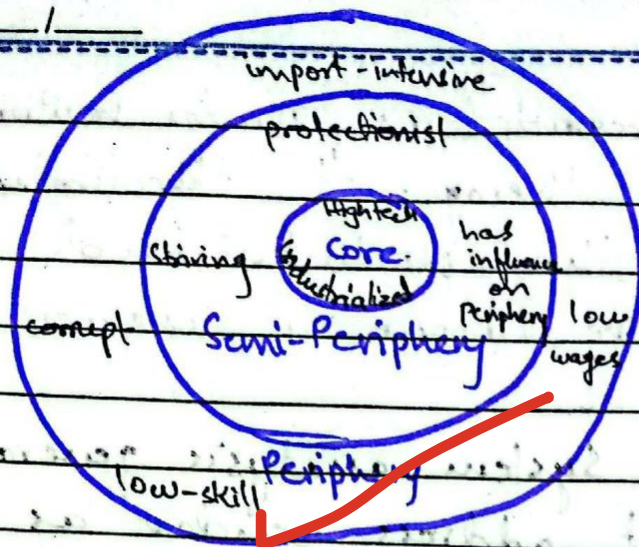 import-intensive
protectionist
Hightech
Core
industrialized
striving
has
influence
on
periphery
low
wages
corrupt
Semi-Periphery
Periphery
low-skill